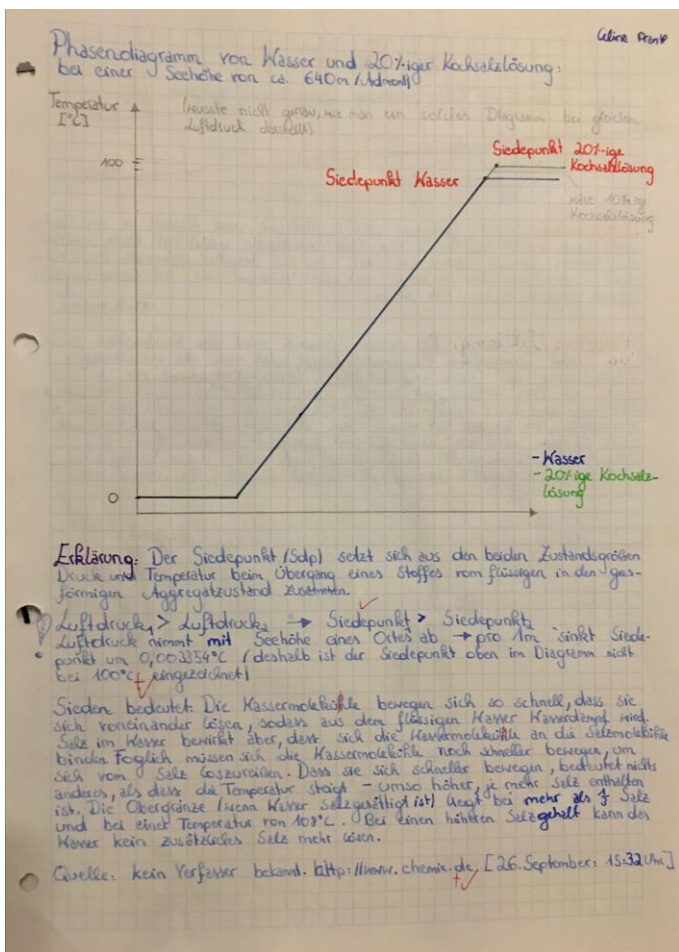 Phasendiagramm von Wasser und 20%iger Kochsalzlösung:
bei einer Seehöhe von ca. 640m (Admont)
Temperatur
[°C]
(wusste nicht genau, wie man ein solches Diagramm bei gleichem
Luftdruck darstellt)
100
Siedepunkt 20%-ige
Kochsalzlösung
Siedepunkt Wasser
10%ige
Kochsalzlösung
- Wasser
- 20%ige Kochsalz-
lösung
0
Erklärung: Der Siedepunkt (Sdp) setzt sich aus den beiden Zustandsgrößen
Druck und Temperatur beim Übergang eines Stoffes vom flüssigen in den gas-
förmigen Aggregatzustand zusammen.
Luftdruck1 > Luftdruck2 → Siedepunkt1 > Siedepunkt2
Luftdruck nimmt mit Seehöhe eines Ortes ab → pro 1m sinkt Siede-
punkt um 0,003354°C (deshalb ist der Siedepunkt oben im Diagramm nicht
bei 100°C eingezeichnet)
Sieden bedeutet: Die Wassermoleküle bewegen sich so schnell, dass sie
sich voneinander lösen, sodass aus dem flüssigen Wasser Wasserdampf wird.
Salz im Wasser bewirkt aber, dass sich die Wassermoleküle an die Salzmoleküle
binden. Foglich müssen sich die Wassermoleküle noch schneller bewegen, um
sich vom Salz loszureißen. Dass sie sich schneller bewegen, bedeutet nichts
anderes, als dass die Temperatur steigt - umso höher, je mehr Salz enthalten
ist. Die Obergränze (wenn Wasser Salzgesättigt ist) liegt bei mehr als Salz
und bei einer Temperatur von 108°C. Bei einen höheren Salzgehalt kann das
Wasser kein zusätzliches Salz mehr lösen.
Quelle: kein Verfasser bekannt. http://www.chemie.de, [26.September: 15:32 Uhr]